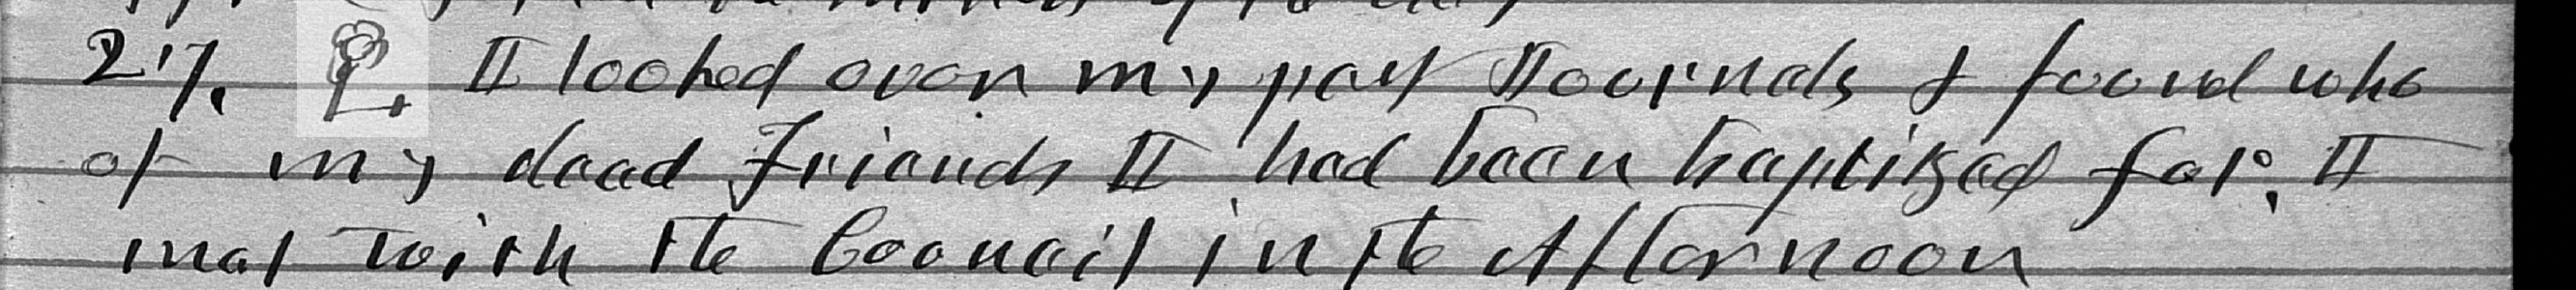 27. I looked over my past Journals & found who
of my dead Friends I had been baptized for. I
met with the Council in the Afternoon